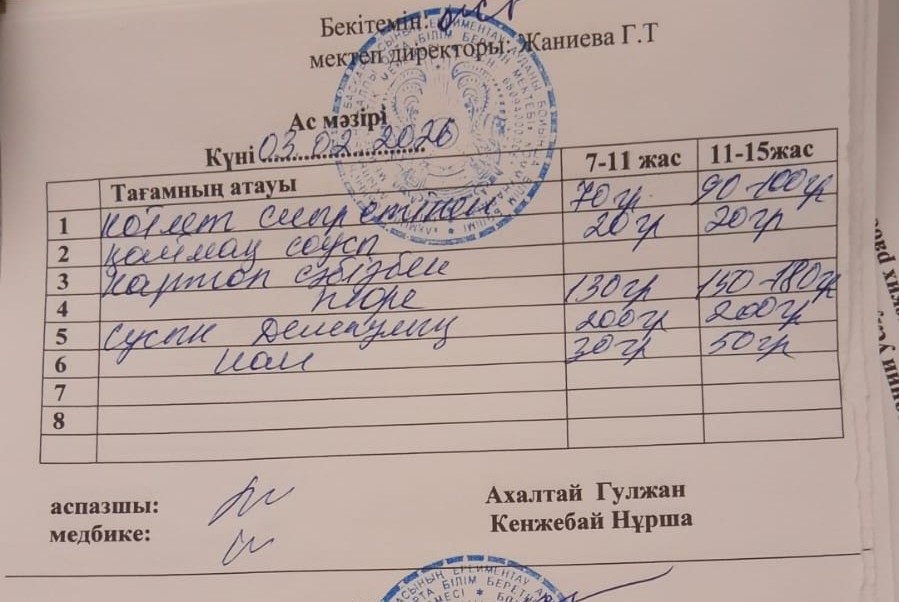 Бекітемін:
мектеп директоры: Жаниева Г.Т
Ас мәзірі
Күні 03.02.2026
Тағамның атауы 7-11 жас 11-15жас
1 Котлет сиыр етінен 70гр 90-100гр
2 қаймақ соусп 20гр 20гр
3 Картоп сәбізбен
4 пюре 130гр 150-180гр
5 Сусын 200гр 200гр
6 Нан 30гр 50гр
7
8
аспазшы: Ахалтай Гулжан
медбике: Кенжебай Нұрша